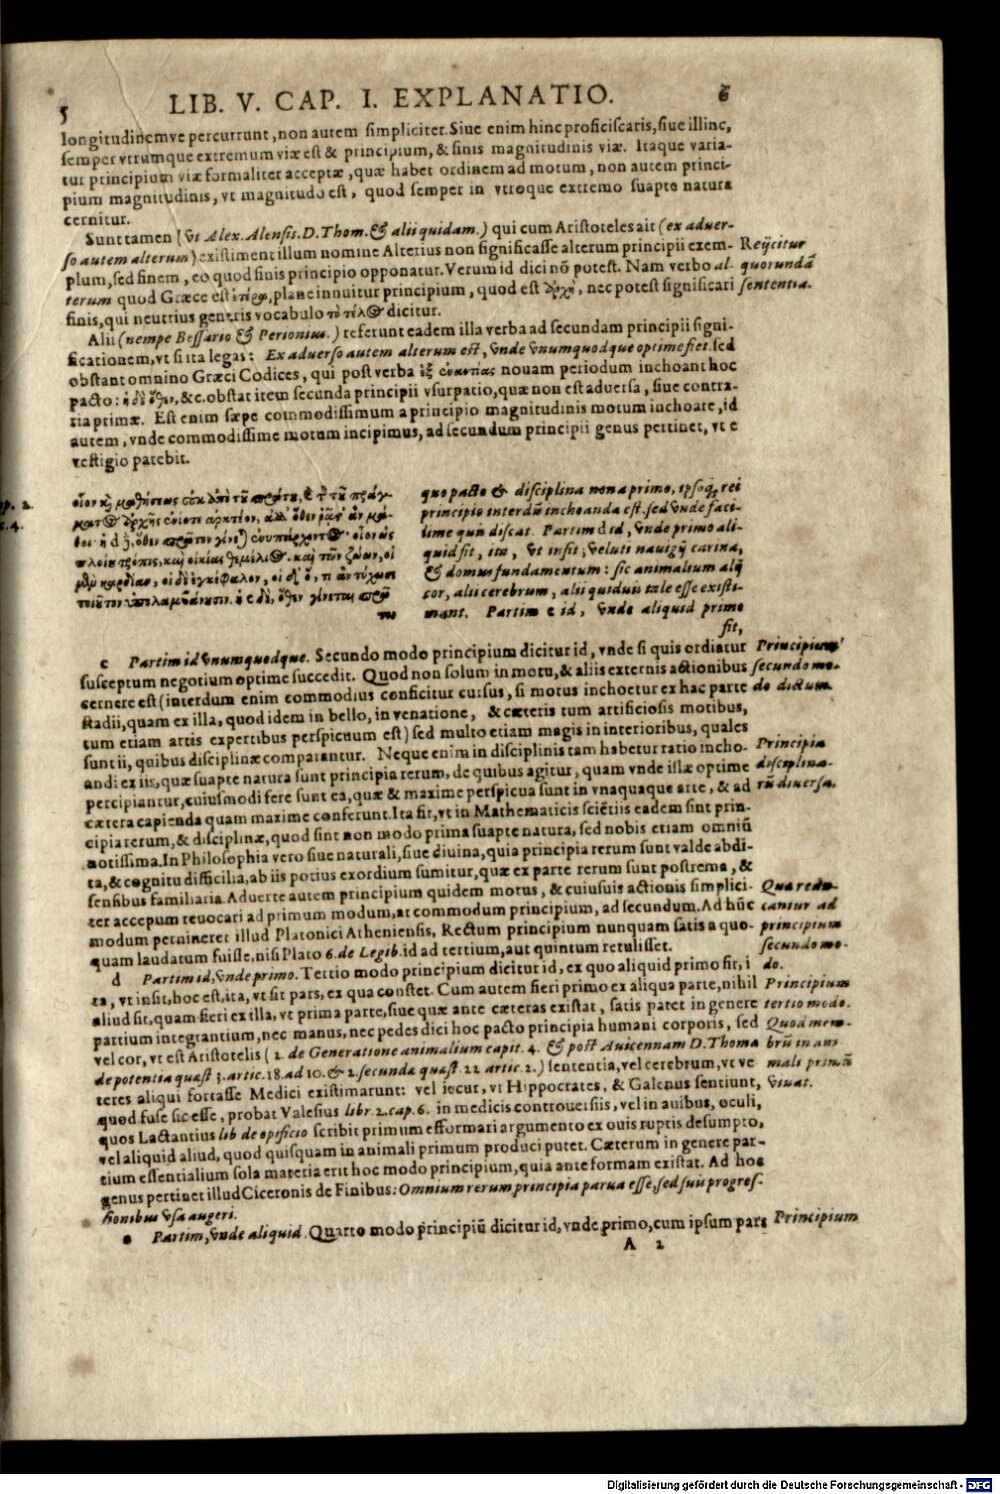 5 LIB. V. CAP. I. EXPLANATIO. 6
longitudinemve percurrunt, non autem simpliciter. Siue enim hinc proficiscaris, siue illinc,
semper vtrumque extremum viæ est & principium, & finis magnitudinis viæ. Itaque varia-
tur principium viæ formaliter acceptæ, quæ habet ordinem ad motum, non autem princi-
pium magnitudinis, vt magnitudo est, quod semper in vtroque extremo suapte natura
cernitur.
Sunt tamen (vt Alex. Alensis. D. Thom. & alii quidam.) qui cum Aristoteles ait (ex aduer-
so autem alterum) existiment illum nomine Alterius non significasse alterum principii exem-
plum, sed finem, eo quod finis principio opponatur. Verum id dici nō potest. Nam verbo al-
terum quod Græce est ἑτέρα, plane innuitur principium, quod est ἀρχὴ, nec potest significari
finis, qui neutrius generis vocabulo τὸ τέλος dicitur.
Reijcitur
quorundā
sententia.
Alii (nempe Bessario & Perionius.) referunt eadem illa verba ad secundam principii signi-
ficationem, vt si ita legas: Ex aduerso autem alterum est, vnde vnumquodque optime fiet. sed
obstant omnino Græci Codices, qui post verba ἐξ ἐναντίας nouam periodum inchoant hoc
pacto: ἡ δὲ ὅθεν, &c. obstat item secunda principii vsurpatio, quæ non est aduersa, siue contra-
ria primæ. Est enim sæpe commodissimum a principio magnitudinis motum inchoare, id
autem, vnde commodissime motum incipimus, ad secundum principii genus pertinet, vt e
vestigio patebit.
οἷον καὶ μαθήσεως οὐκ ἀπὸ τοῦ πρώτου, καὶ τῆς τοῦ πράγ-
ματος ἀρχῆς ἐνίοτε ἀρκτέον, ἀλλ' ὅθεν ῥᾷστ' ἂν μά-
θοι· ἡ d δὲ, ὅθεν πρῶτον γίνεται ἐνυπάρχοντος· οἷον ὡς
πλοίου τρόπις, καὶ οἰκίας θεμέλιος. καὶ τῶν ζώων, οἱ
μὲν καρδίαν, οἱ δὲ ἐγκέφαλον, οἱ δ' ὅ, τι ἂν τύχωσι
τοιοῦτον ὑπολαμβάνουσιν. ἡ e δὲ, ὅθεν γίνεται πρώ
του
quo pacto & disciplina non a primo, ipsoq, rei
principio interdū inchoanda est. sed vnde faci-
lime quis discat. Partim d id, vnde primo ali-
quid fit, ita, vt insit, veluti nauigij carina,
& domus fundamentum: sic animalium alij
cor, alii cerebrum, alii quiduis tale esse existi-
mant. Partim e id, vnde aliquid primo
fit,
c Partim id vnumquodque. Secundo modo principium dicitur id, vnde si quis ordiatur
susceptum negotium optime succedit. Quod non solum in motu, & aliis externis actionibus
cernere est (interdum enim commodius conficitur cursus, si motus inchoetur ex hac parte
stadii, quam ex illa, quod idem in bello, in venatione, & cæteris tum artificiosis motibus,
tum etiam artis expertibus perspicuum est) sed multo etiam magis in interioribus, quales
sunt ii, quibus disciplinæ comparantur. Neque enim in disciplinis tam habetur ratio incho-
andi ex iis, quæ suapte natura sunt principia rerum, de quibus agitur, quam vnde illæ optime
percipiantur, cuiusmodi fere sunt ea, quæ & maxime perspicua sunt in vnaquaque arte, & ad
cætera capienda quam maxime conferunt. Ita fit, vt in Mathematicis sciētiis eadem sint prin-
cipia rerum, & disciplinæ, quod sint non modo prima suapte natura, sed nobis etiam omniū
notissima. In Philosophia vero siue naturali, siue diuina, quia principia rerum sunt valde abdi-
ta, & cognitu difficilia, ab iis potius exordium sumitur, quæ ex parte rerum sunt postrema, &
sensibus familiaria. Aduerte autem principium quidem motus, & cuiusuis actionis simplici-
ter acceptum reuocari ad primum modum, at commodum principium, ad secundum. Ad hūc
modum pertineret illud Platonici Atheniensis, Rectum principium nunquam satis a quo-
quam laudatum fuisse, nisi Plato 6. de Legib. id ad tertium, aut quintum retulisset.
Principium
secundo mo-
do dictum.
Principia
disciplina-
rū diuersa.
Quæ redu-
cantur ad
principium
secundo mo-
do.
d Partim id, vnde primo. Tertio modo principium dicitur id, ex quo aliquid primo fit, i
ta, vt insit, hoc est, ita, vt sit pars, ex qua constet. Cum autem fieri primo ex aliqua parte, nihil
aliud sit, quam fieri ex illa, vt prima parte, siue quæ ante cæteras existat, satis patet in genere
partium integrantium, nec manus, nec pedes dici hoc pacto principia humani corporis, sed
vel cor, vt est Aristotelis (2. de Generatione animalium capit. 4. & post Auicennam D. Thoma
de potentia quæst 3. artic. 18. ad 10. & 2. secunda quæst. 22 artic. 2.) sententia, vel cerebrum, vt ve
teres aliqui fortasse Medici existimarunt: vel iecur, vt Hippocrates, & Galenus sentiunt,
quod fuse sic esse, probat Valesius libr. 2. cap. 6. in medicis controuersiis, vel in auibus, oculi,
quos Lactantius lib de opificio scribit primum efformari argumento ex ouis ruptis desumpto,
vel aliquid aliud, quod quisquam in animali primum produci putet. Cæterum in genere par-
tium essentialium sola materia erit hoc modo principium, quia ante formam existat. Ad hoc
genus pertinet illud Ciceronis de Finibus: Omnium rerum principia parua esse, sed suis progres-
sionibus vsa augeri.
Principium
tertio modo.
Quod mem-
brū in ani
mali primū
viuat.
e Partim, vnde aliquid. Quarto modo principiū dicitur id, vnde primo, cum ipsum pars
Principium
A 2
Digitalisierung gefördert durch die Deutsche Forschungsgemeinschaft - DFG